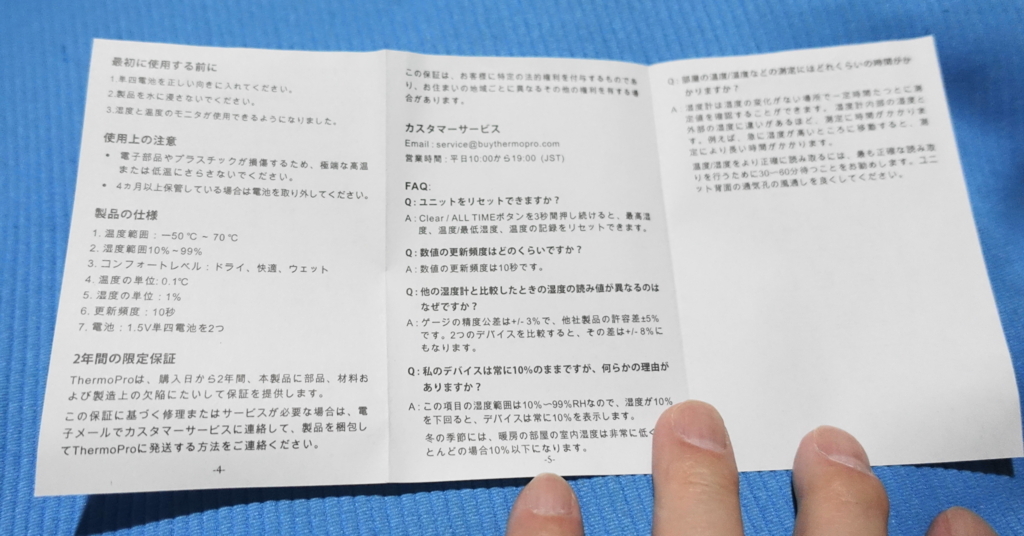 最初に使用する前に
1.単四電池を正しい向きに入れてください。
2.製品を水に浸さないでください。
3.湿度と温度のモニタが使用できるようになりました。
使用上の注意
• 電子部品やプラスチックが損傷するため、極端な高温
または低温にさらさないでください。
• 4ヵ月以上保管している場合は電池を取り外してください。
製品の仕様
1. 温度範囲：－50℃ ~ 70℃
2. 湿度範囲10%~99%
3. コンフォートレベル：ドライ、快適、ウェット
4. 温度の単位: 0.1℃
5. 湿度の単位：1%
6. 更新頻度：10秒
7. 電池：1.5V単四電池を2つ
2年間の限定保証
ThermoProは、購入日から2年間、本製品に部品、材料お
よび製造上の欠陥にたいして保証を提供します。
この保証に基づく修理またはサービスが必要な場合は、電
子メールでカスタマーサービスに連絡して、製品を梱包し
てThermoProに発送する方法をご連絡ください。
-4-
この保証は、お客様に特定の法的権利を付与するものであ
り、お住まいの地域ごとに異なるその他の権利を有する場
合があります。
カスタマーサービス
Email : service@buythermopro.com
営業時間 : 平日10:00から19:00 (JST)
FAQ:
Q : ユニットをリセットできますか？
A : Clear / ALL TIMEボタンを3秒間押し続けると、最高湿
度、温度/最低湿度、温度の記録をリセットできます。
Q : 数値の更新頻度はどのくらいですか？
A : 数値の更新頻度は10秒です。
Q : 他の湿度計と比較したときの湿度の読み値が異なるのは
なぜですか？
A : ゲージの精度公差は+/- 3%で、他社製品の許容差±5%
です。2つのデバイスを比較すると、その差は+/- 8%に
もなります。
Q : 私のデバイスは常に10%のままですが、何らかの理由が
ありますか？
A : この項目の湿度範囲は10%〜99%RHなので、湿度が10%
を下回ると、デバイスは常に10%を表示します。
冬の季節には、暖房の部屋の室内湿度は非常に低く
とんどの場合10%以下になります。
-5-
Q : 部屋の温度/湿度などの測定にほどれくらいの時間がか
かりますか？
A : 湿度計は湿度の変化がない場所で一定時間たつとに測
定値を確認することができます。湿度計内部の湿度と
外部の湿度に違いがあるほど、測定に時間がかかりま
す。例えば、急に湿度が高いところに移動すると、測
定により長い時間がかかります。
温度/湿度をより正確に読み取るには、最も正確な読み取
りを行うために30—60分待つことをお勧めします。ユニ
ット背面の通気孔の風通しを良くしてください。